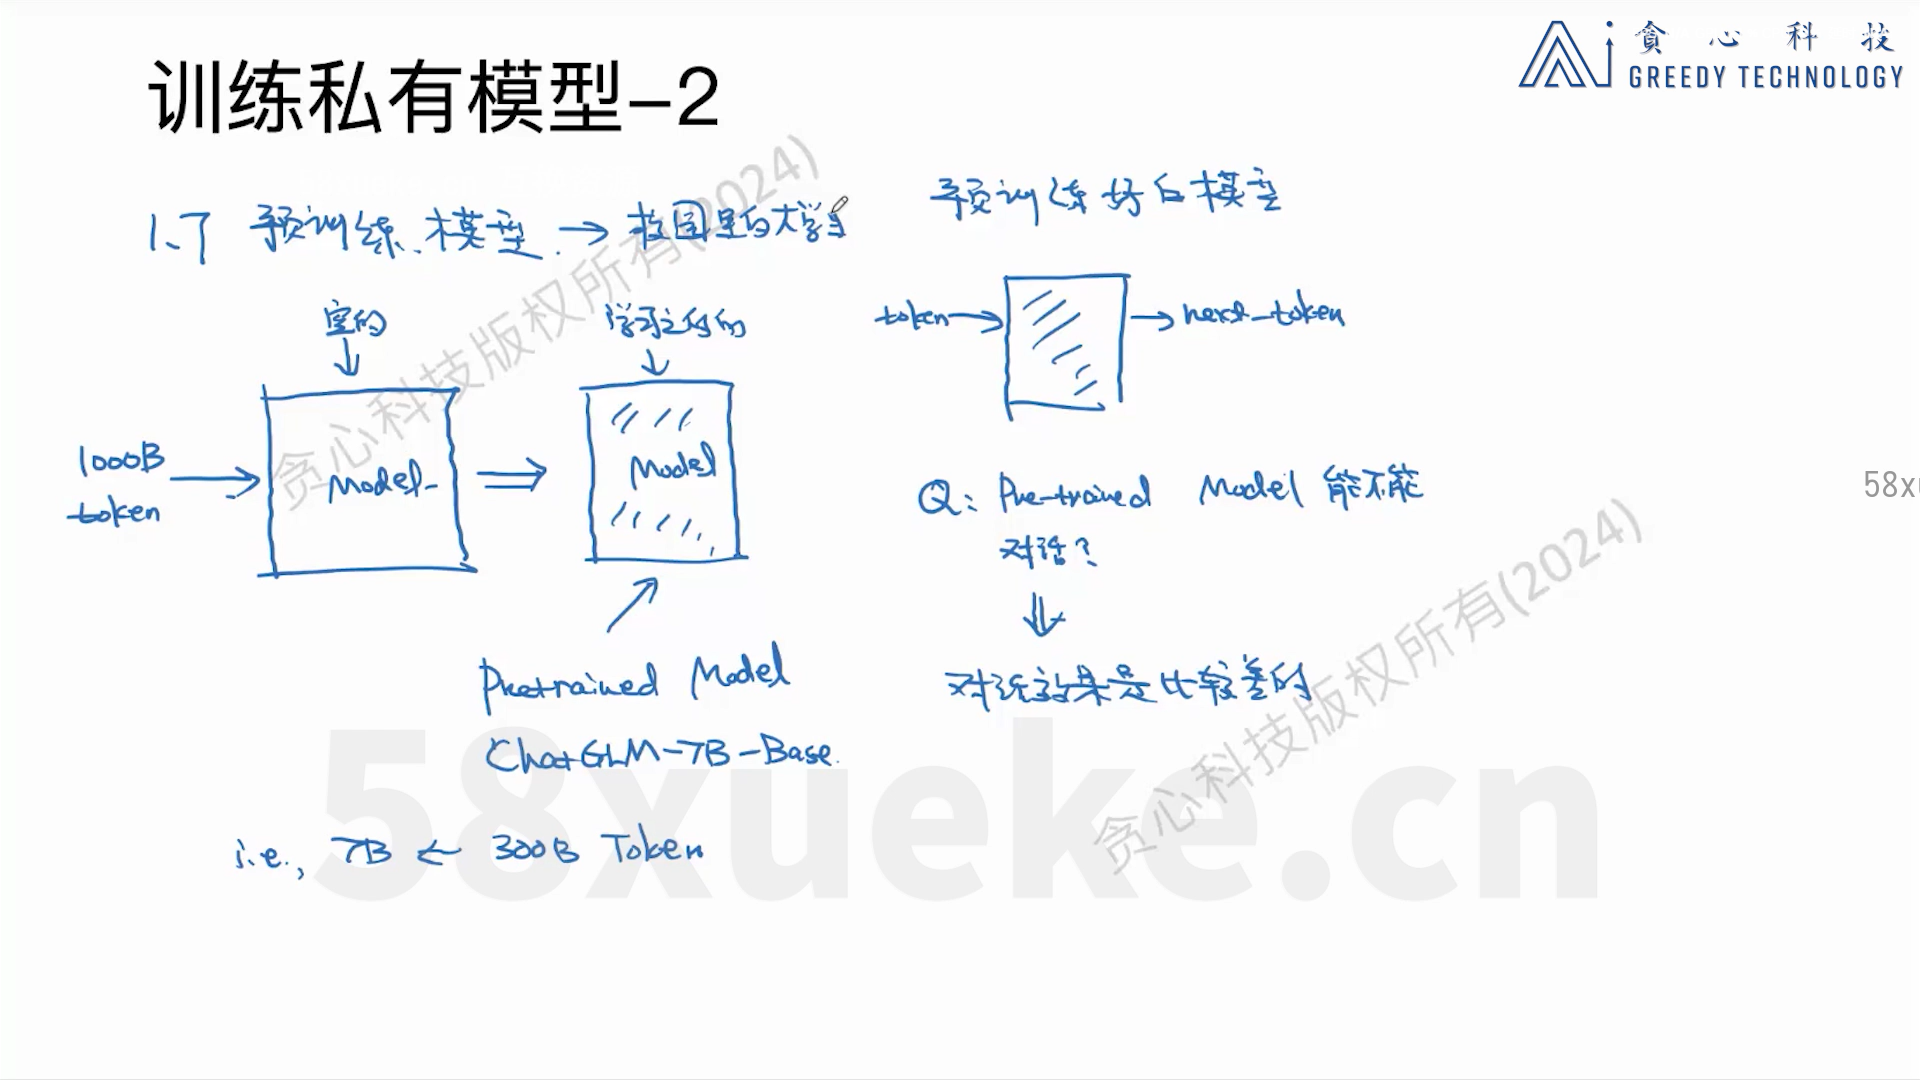 训练私有模型-2
贪心科技
GREEDY TECHNOLOGY
1.7 预训练模型 → 校园里的大学生
空的
学习之后的
1000B
token
Model
Model
Pretrained Model
ChatGLM-7B-Base
i.e., 7B ← 300B Token
预训练好的模型
token
next_token
Q: Pre-trained Model 能不能
对话?
对话效果是比较差的
贪心科技版权所有(2024)
贪心科技版权所有(2024)
58xueke.cn
58x